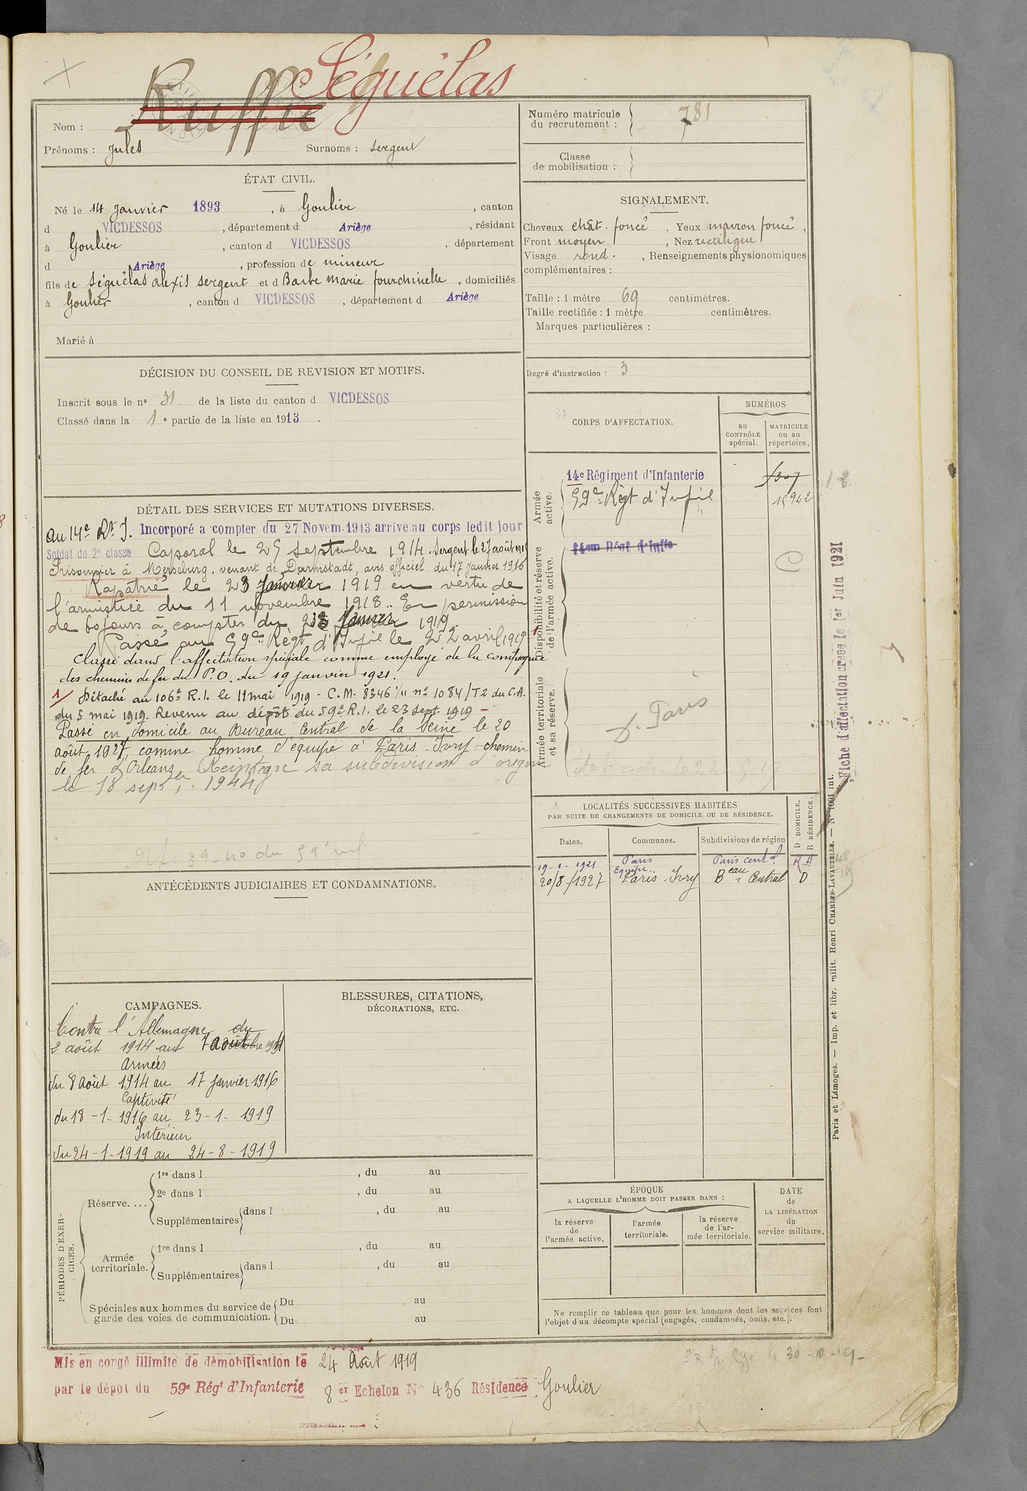 Séguélas
Ruffié
Nom :
Prénoms : Jules Surnoms : Sergent
ÉTAT CIVIL.
Né le 14 Janvier 1893, à Goulier, canton
d VICDESSOS, département d Ariège, résidant
à Goulier, canton d VICDESSOS, département
d Ariège, profession de mineur
fils de Séguélas Alexis Sergent et d Barbe Marie fourchinelle, domiciliés
à Goulier, canton d VICDESSOS, département d Ariège
Marié à
DÉCISION DU CONSEIL DE REVISION ET MOTIFS.
Inscrit sous le nº 31 de la liste du canton d VICDESSOS
Classé dans la 1e partie de la liste en 1913.
DÉTAIL DES SERVICES ET MUTATIONS DIVERSES.
Au 14e Rt I. Incorporé a compter du 27 Novem. 1913 arrive au corps ledit jour
Soldat de 2e classe. Caporal le 25 Septembre 1914. Sergent le 27 août 1915
Prisonnier à Merseburg, venant de Darmstadt, avis officiel du 17 Janvier 1916
Rapatrié le 23 Janvier 1919 en vertu de
l'armistice du 11 novembre 1918. En permission
de 60 jours à compter du 23 Janvier 1919
Passé au 59e Régt d'Infie le 22 avril 1919
Classé dans l'affectation spéciale comme employé de la compagnie
des chemins de fer du P.O. du 19 janvier 1921.
1/ Détaché au 106e R.I. le 11 mai 1919 - C.M. 8346 /11 nº 1084/T2 du C.A.
du 5 mai 1919. Revenu au dépôt du 59e R.I. le 23 Sept 1919 -
Passé en domicile au Bureau Central de la Seine le 20
août 1927 comme homme d'équipe à Paris-Ivry chemin
de fer d'Orléans. Réintègre sa subdivision d'origine
le 18 sept. 1944
ANTÉCÉDENTS JUDICIAIRES ET CONDAMNATIONS.
CAMPAGNES.
Contre l'Allemagne du
2 août 1914 au 7 août 1914
Armées
du 8 Août 1914 au 17 Janvier 1916
Captivité
du 18-1-1916 au 23-1-1919
Intérieur
du 24-1-1919 au 24-8-1919
BLESSURES, CITATIONS,
DÉCORATIONS, ETC.
PÉRIODES D'EXERCICES.
Réserve....
1re dans l , du au
2e dans l , du au
Supplémentaires dans l , du au
Armée territoriale.
1re dans l , du au
Supplémentaires dans l , du au
Spéciales aux hommes du service de garde des voies de communication.
Du au
Du au
Numéro matricule du recrutement : 781
Classe de mobilisation :
SIGNALEMENT.
Cheveux chât. foncé, Yeux marron foncé,
Front moyen, Nez rectiligne
Visage rond., Renseignements physionomiques
complémentaires :
Taille : 1 mètre 69 centimètres.
Taille rectifiée : 1 mètre centimètres.
Marques particulières :
Degré d'instruction : 3
CORPS D'AFFECTATION.
NUMÉROS
au CONTRÔLE spécial.
MATRICULE ou au répertoire.
Armée active.
14e Régiment d'Infanterie
59e Régt d'Infie
15942
Disponibilité et réserve de l'armée active.
14em Régt d'Infie
C
Armée territoriale et sa réserve.
D. Paris
LOCALITÉS SUCCESSIVES HABITÉES
PAR SUITE DE CHANGEMENTS DE DOMICILE OU DE RÉSIDENCE.
D DOMICILE. R RÉSIDENCE.
Dates. Communes. Subdivisions de région
19-1-1921 Paris Paris centl R
20/8/1927 Paris-Ivry Beau Central D
ÉPOQUE
A LAQUELLE L'HOMME DOIT PASSER DANS :
la réserve de l'armée active.
l'armée territoriale.
la réserve de l'armée territoriale.
DATE de LA LIBÉRATION du service militaire.
Ne remplir ce tableau que pour les hommes dont les services font
l'objet d'un décompte spécial (engagés, condamnés, omis, etc.).
Fiche d'affectation créée le 1er Juin 1921
Paris et Limoges. — Imp. et libr. milit. Henri CHARLES-LAVAUZELLE.
Mis en congé illimité de démobilisation le 24 Août 1919
par le dépôt du 59e Régt d'Infanterie 8er Echelon Nº 436 Résidence Goulier